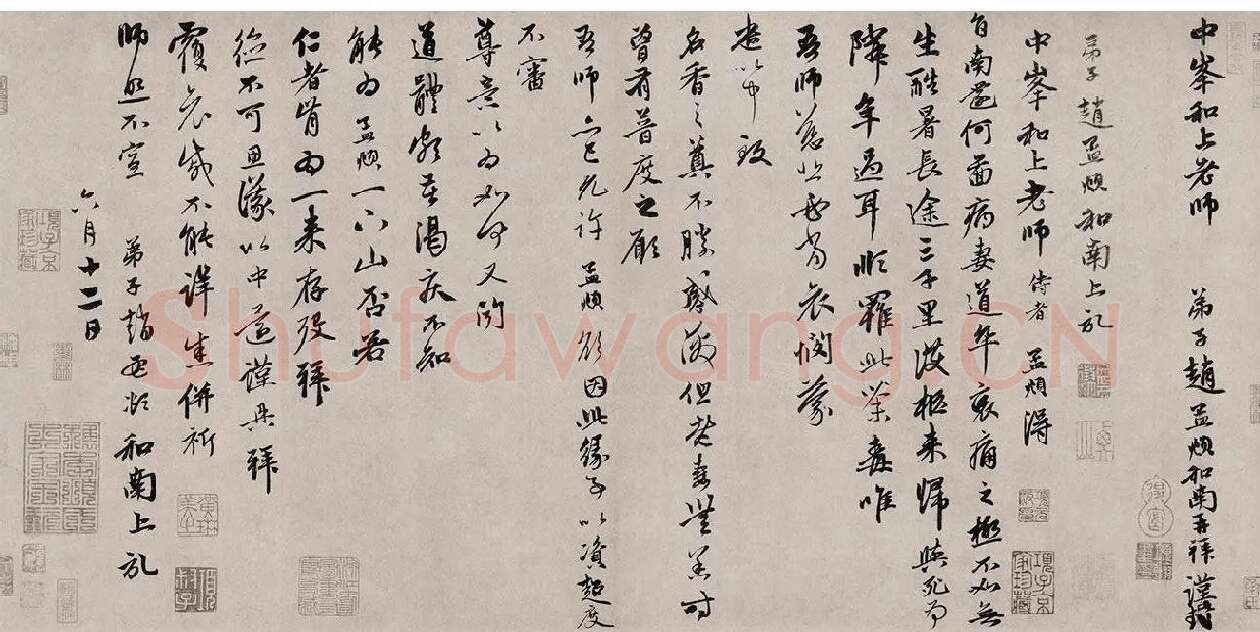 中峯和上老師 弟子趙孟頫和南再拜謹封
弟子趙孟頫和南上記
中峯和上老師侍者 孟頫得
旨南還何圖病妻道卒哀痛之極不如無
生酷暑長途三千里護柩来歸與死為
隣年過耳順罹此荼毒唯
吾師慈悲必當哀憫蒙
遣以中致
名香之奠不勝感激但老妻無恙時
曾有普度之願
吾師亦已允許孟頫欲因此緣事以資超度
不審
尊意以為如何又聞
道體頗苦渴疾不知
能為孟頫一下山否若
仁者肯為一来存歿拜
德不可思議以中還謹再拜
覆哀感不能詳悉併祈
師照不宣 弟子趙孟頫和南上記
六月十二日
Shufawang.CN